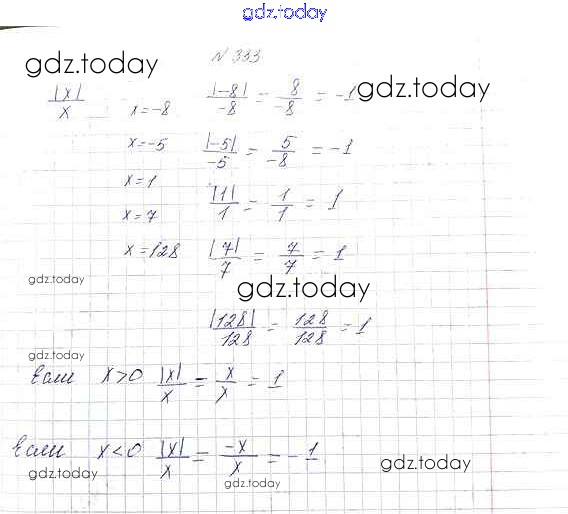 gdz.today
N 333
gdz.today
|x|/x x=-8 |-8|/-8 = 8/-8 = -1 gdz.today
x=-5 |-5|/-5 = 5/-8 = -1
x=1 |1|/1 = 1/1 = 1
x=7
x=128 |7|/7 = 7/7 = 1
gdz.today gdz.today
|128|/128 = 128/128 = 1
gdz.today
Если x>0 |x|/x = x/x = 1
Если x<0 |x|/x = -x/x = -1
gdz.today gdz.today gdz.today